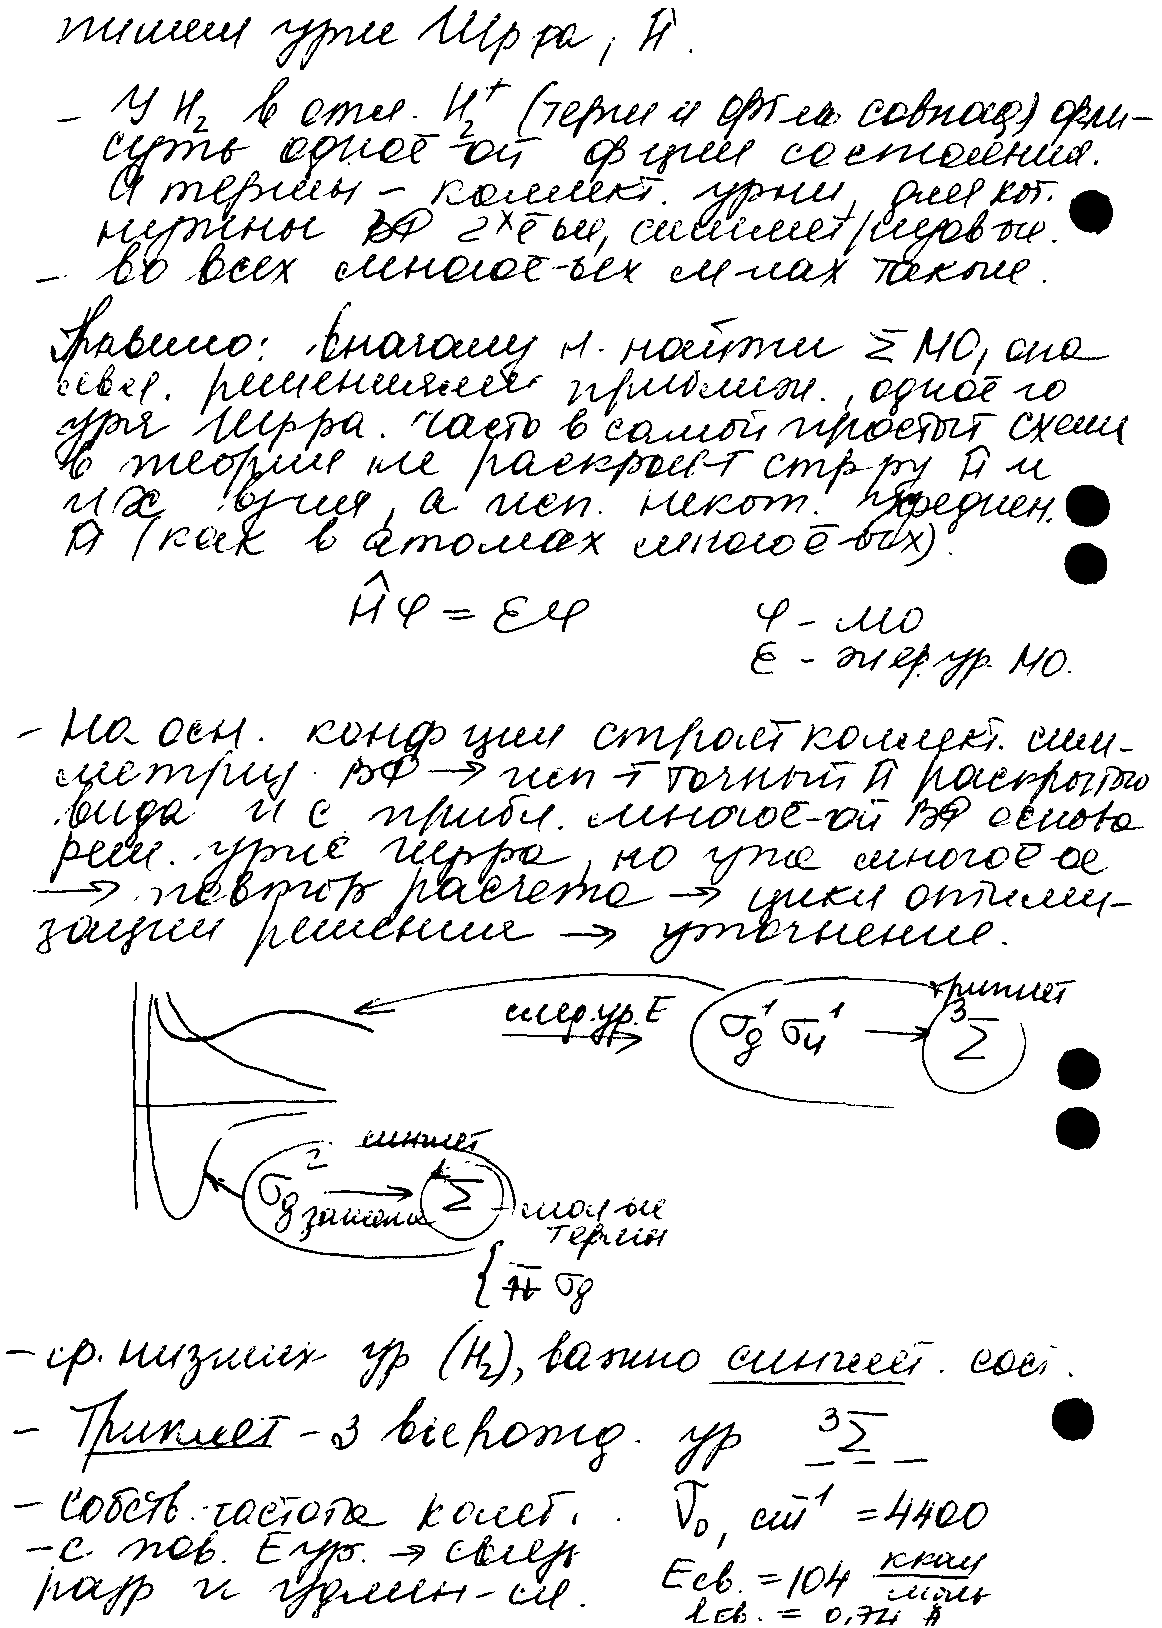 пишем ур-ие Шр-ра, Ĥ.
- У H₂ в отл. H₂⁺ (термы и орб-ли совпад)
суть одноē-ой ф-ции состояния.
А термы - коллект. ур-ни, для кот.
нужны ВФ 2ˣ ē-ые, симмет
- во всех многоē-ых м-лах такие.
Правило: вначале н. найти Σ МО, она
явл. решениями приближ., одноē-го
ур-я Шр-ра. Часто в самой простой схеме
в теории не раскрою-т стр-ру Ĥ и
их, а исп. некот. усреднен.
Ĥ (как в атомах многоē-ых).
Ĥφ = εφ φ - МО
ε - энер. ур. МО.
- На осн. конф-ции строят коллект. сим-
метриз. ВФ → исп-т точный Ĥ раскрытого
вида и с прибл. многоē-ой ВФ основа
реш. ур-ие Шр-ра, но уже многоē-ое
→ повтор расчета → цикл оптими-
зации решения → уточнение.
триплет
след. ур. E σg¹ σu¹ → ³Σ
синглет
σg² → Σ - мол-ые
термы
σg
- ср. низших ур (H₂), важно синглет. сост.
- Триплет - 3 вырожд. ур ³Σ
- собств. частота колеб. ν̄₀, cm⁻¹ = 4400
- с пов. E ур. → связь
разр и удлин-ся. Eсв. = 104 ккал/моль
lсв. = 0,74 Å